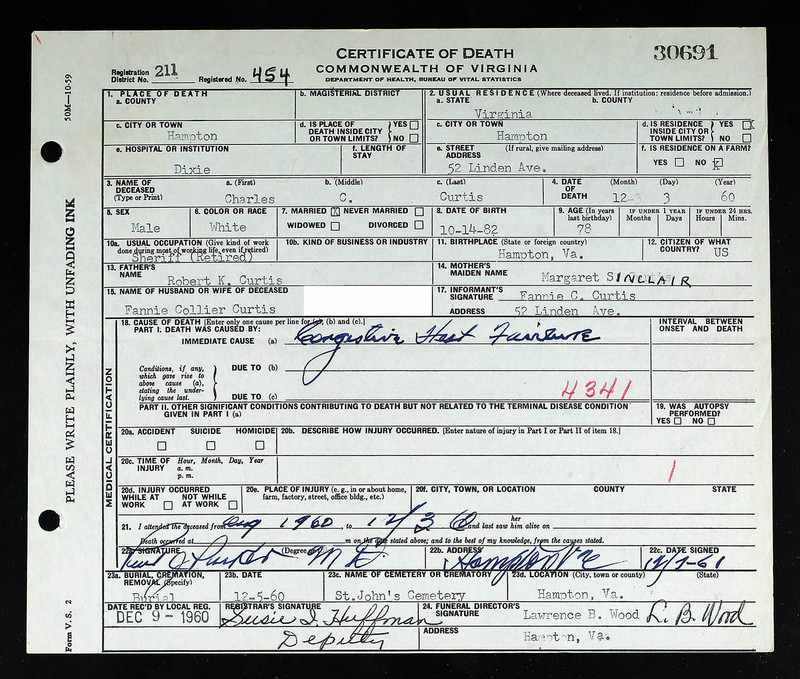 CERTIFICATE OF DEATH
COMMONWEALTH OF VIRGINIA
DEPARTMENT OF HEALTH, BUREAU OF VITAL STATISTICS
30691
Registration District No. 211 Registered No. 454
50M—10-59
PLEASE WRITE PLAINLY, WITH UNFADING INK
Form V. S. 2
1. PLACE OF DEATH
a. COUNTY
b. MAGISTERIAL DISTRICT
2. USUAL RESIDENCE (Where deceased lived. If institution: residence before admission.)
a. STATE b. COUNTY
Virginia
c. CITY OR TOWN
Hampton
d. IS PLACE OF DEATH INSIDE CITY OR TOWN LIMITS? YES NO
c. CITY OR TOWN
Hampton
d. IS RESIDENCE INSIDE CITY OR TOWN LIMITS? YES X NO
e. HOSPITAL OR INSTITUTION
Dixie
f. LENGTH OF STAY
e. STREET ADDRESS (If rural, give mailing address)
52 Linden Ave.
f. IS RESIDENCE ON A FARM?
YES NO X
3. NAME OF DECEASED (Type or Print)
a. (First) b. (Middle) c. (Last)
Charles C. Curtis
4. DATE OF DEATH (Month) (Day) (Year)
12- 3 60
5. SEX
Male
6. COLOR OR RACE
White
7. MARRIED X NEVER MARRIED
WIDOWED DIVORCED
8. DATE OF BIRTH
10-14-82
9. AGE (In years last birthday)
78
IF UNDER 1 YEAR Months Days
IF UNDER 24 HRS. Hours Mins.
10a. USUAL OCCUPATION (Give kind of work done during most of working life, even if retired)
Sheriff (Retired)
10b. KIND OF BUSINESS OR INDUSTRY
11. BIRTHPLACE (State or foreign country)
Hampton, Va.
12. CITIZEN OF WHAT COUNTRY? US
13. FATHER'S NAME
Robert K. Curtis
14. MOTHER'S MAIDEN NAME
Margaret SINCLAIR
15. NAME OF HUSBAND OR WIFE OF DECEASED
Fannie Collier Curtis
17. INFORMANT'S SIGNATURE Fannie C. Curtis
ADDRESS 52 Linden Ave.
MEDICAL CERTIFICATION
18. CAUSE OF DEATH [Enter only one cause per line for (a), (b) and (c).]
PART I. DEATH WAS CAUSED BY:
IMMEDIATE CAUSE (a) Congestive Heart Failure
INTERVAL BETWEEN ONSET AND DEATH
Conditions, if any, which gave rise to above cause (a), stating the underlying cause last.
DUE TO (b)
DUE TO (c)
4341
PART II. OTHER SIGNIFICANT CONDITIONS CONTRIBUTING TO DEATH BUT NOT RELATED TO THE TERMINAL DISEASE CONDITION GIVEN IN PART I (a)
19. WAS AUTOPSY PERFORMED?
YES NO
20a. ACCIDENT SUICIDE HOMICIDE
20b. DESCRIBE HOW INJURY OCCURRED. [Enter nature of injury in Part I or Part II of item 18.]
20c. TIME OF INJURY Hour, Month, Day, Year
a. m.
p. m.
1
20d. INJURY OCCURRED
WHILE AT WORK NOT WHILE AT WORK
20e. PLACE OF INJURY (e. g., in or about home, farm, factory, street, office bldg., etc.)
20f. CITY, TOWN, OR LOCATION COUNTY STATE
21. I attended the deceased from Aug 1960, to 12/3 60 and last saw her alive on
Death occurred at m on the date stated above; and to the best of my knowledge, from the causes stated.
22a. SIGNATURE (Degree or M D
22b. ADDRESS
Hampton Va
22c. DATE SIGNED
23a. BURIAL, CREMATION, REMOVAL (Specify)
Burial
23b. DATE
12-5-60
23c. NAME OF CEMETERY OR CREMATORY
St.John's Cemetery
23d. LOCATION (City, town or county) (State)
Hampton, Va.
DATE REC'D BY LOCAL REG.
DEC 9 - 1960
REGISTRAR'S SIGNATURE
Susie I. Huffman
Deputy
24. FUNERAL DIRECTOR'S SIGNATURE Lawrence B. Wood L. B. Wood
ADDRESS Hampton, Va.